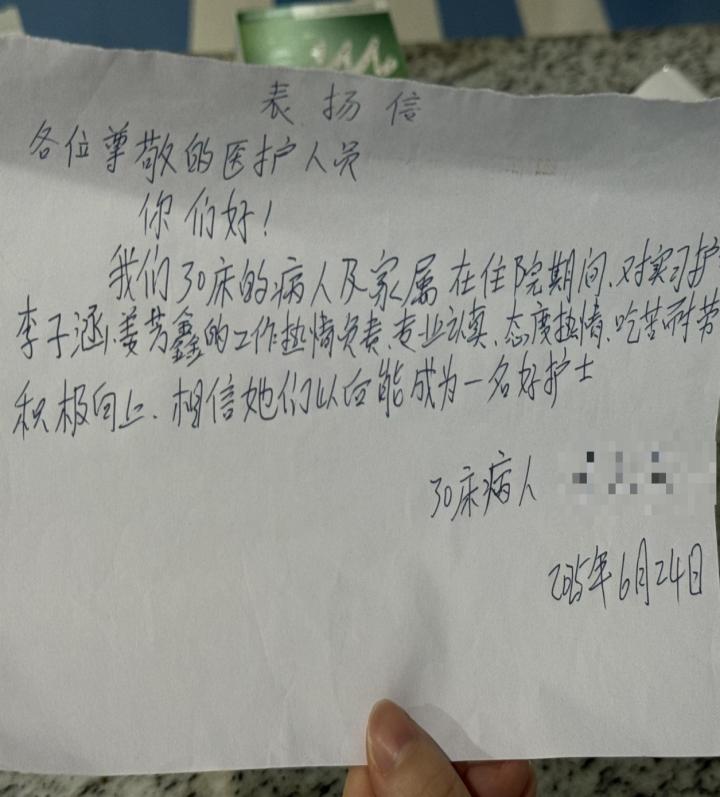 表扬信
各位尊敬的医护人员
你们好!
我们30床的病人及家属在住院期间、对实习护
李子涵、姜芳鑫的工作热情负责、专业认真、态度热情、吃苦耐劳
积极向上、相信她们以后能成为一名好护士
30床病人
2025年6月24日